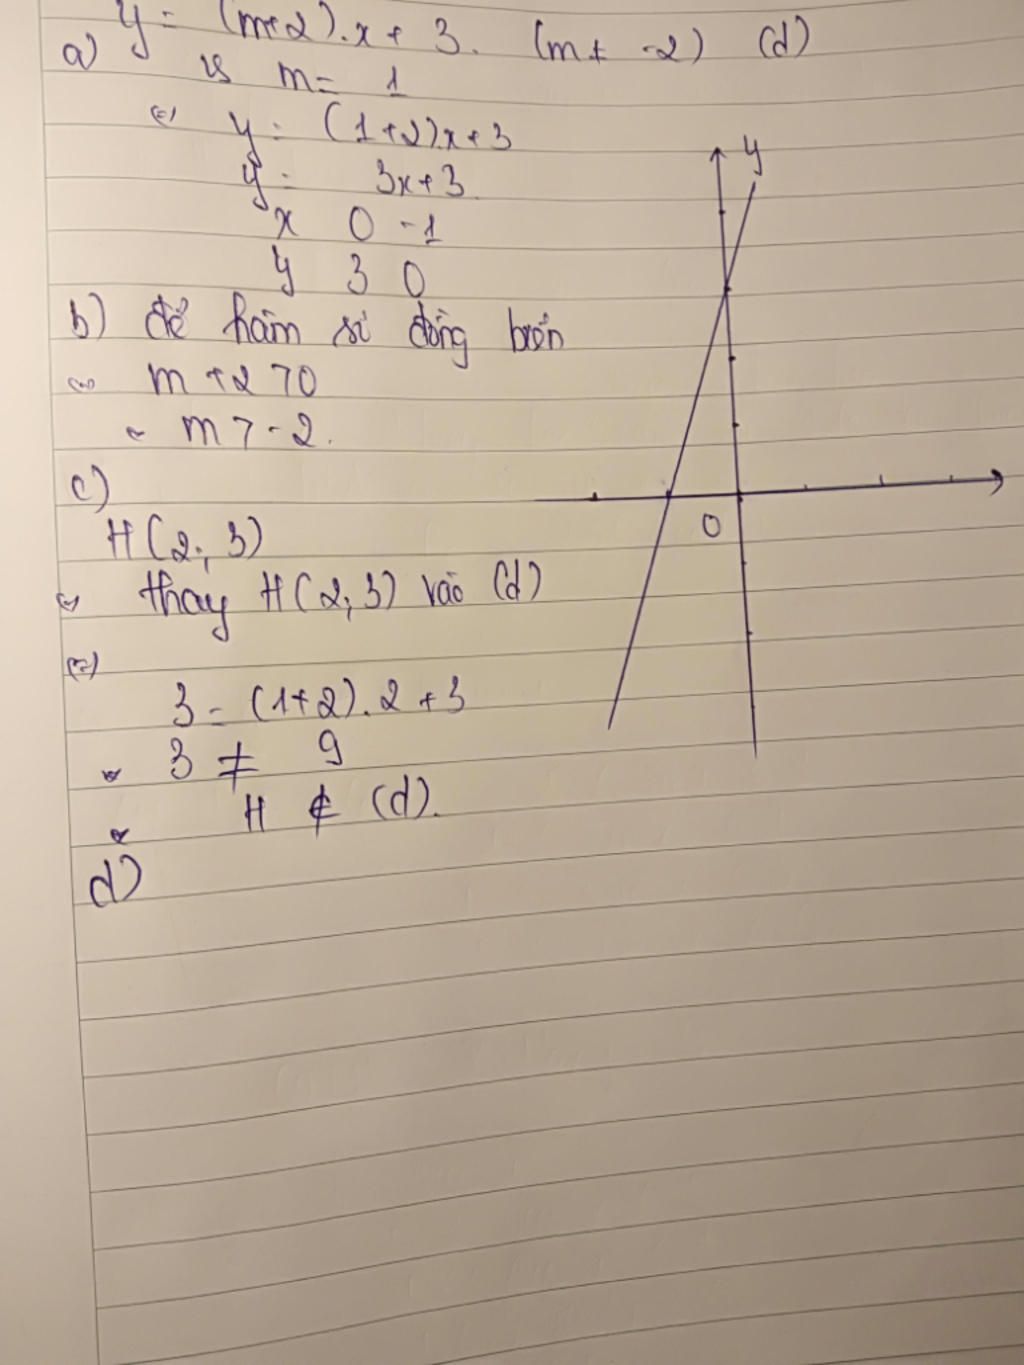 y = (m+2).x + 3. (m ≠ -2) (d)
a) m = 1
⇔ y = (1+2)x+3
y = 3x+3
x 0 -1
y 3 0
b) để hàm số đồng biến
⇔ m+2 > 0
m > -2.
c)
H(2; 3)
⇔ thay H(2; 3) vào (d)
⇔
3 = (1+2).2+3
3 ≠ 9
H ∉ (d).
d)
y
0